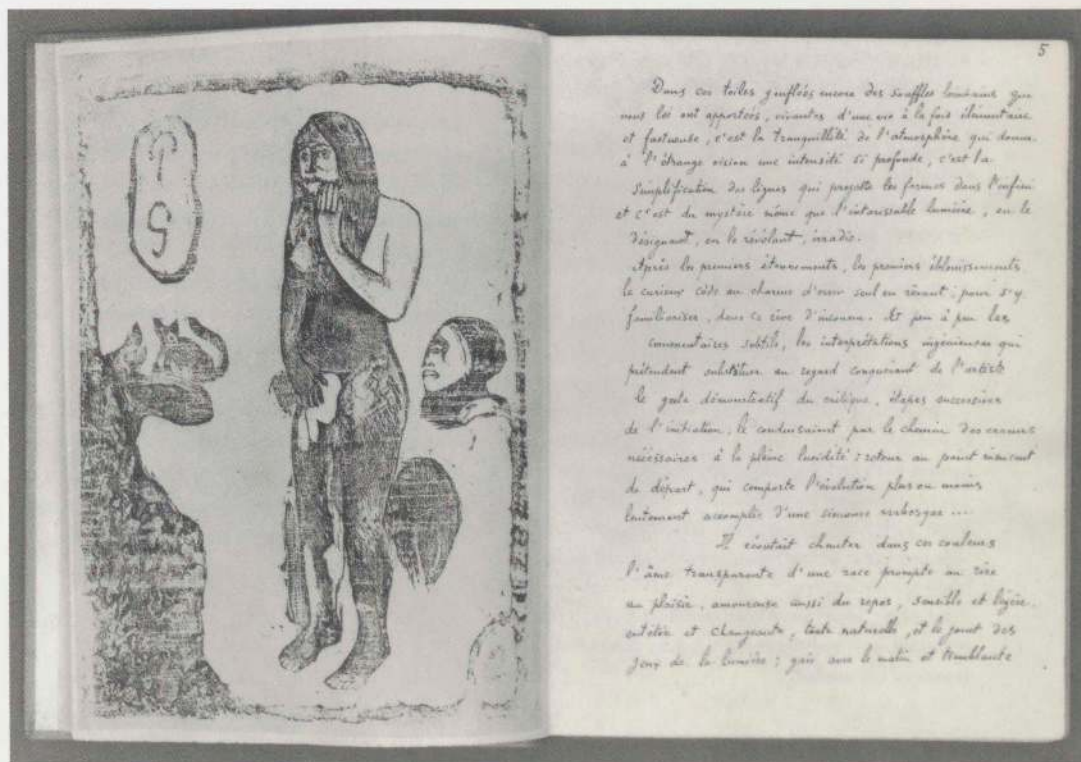 5
Dans ces toiles gonflées encore des souffles lointains qui
nous les ont apportées, vivantes d'une vie à la fois élémentaire
et fastueuse, c'est la tranquillité de l'atmosphère qui donne
à l'étrange vision une intensité si profonde, c'est la
simplification des lignes qui projette les formes dans l'infini
et c'est du mystère même que l'intarissable lumière, en le
désignant, en le révélant, irradie.
Après les premiers étonnements, les premiers éblouissements
le curieux cède au charme d'errer seul en rêvant, pour s'y
familiariser, dans ce rêve d'inconnu. Et peu à peu les
commentaires subtils, les interprétations ingénieuses qui
prétendent substituer au regard conquérant de l'artiste
le geste démonstratif du critique, étapes successives
de l'initiation, le conduisaient par le chemin des erreurs
nécessaires à la pleine lucidité : retour au point
de départ, qui comporte l'évolution plus ou moins
lentement accomplie d'une
Il écoutait chanter dans ces couleurs
l'âme transparente d'une race prompte au rire
au plaisir, amoureuse aussi du repos, sensible et légère
entêtée et changeante, toute naturelle, et le jouet des
jeux de la lumière : gaie avec le matin et tremblante